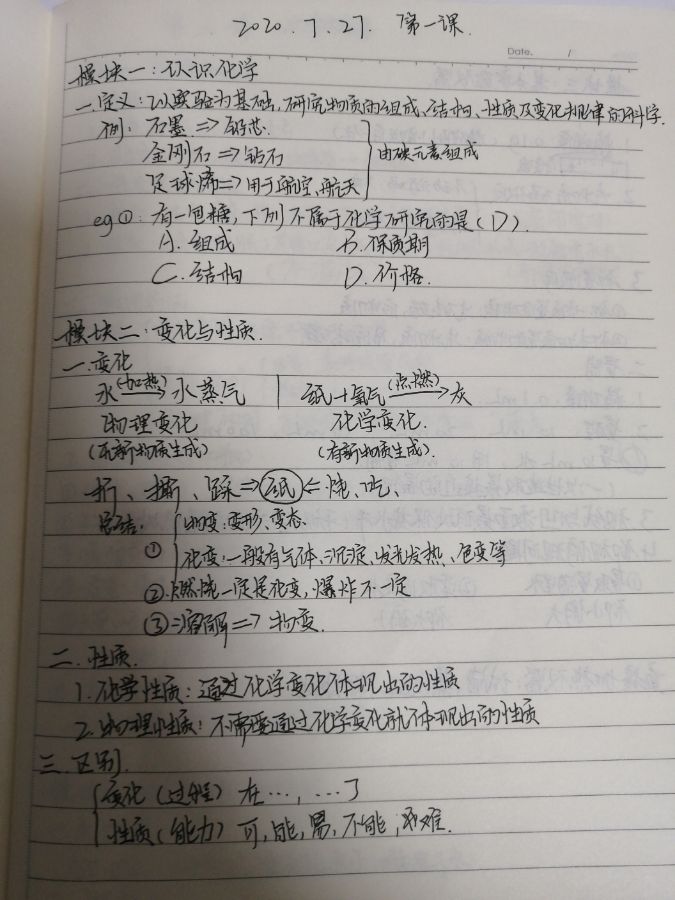 2020.7.27. 第一课.
Date. /
模块一:认识化学
一.定义:以实验为基础,研究物质的组成、结构、性质及变化规律的科学.
例:石墨⇒铅芯.
金刚石⇒钻石 由碳元素组成
足球烯⇒用于航空、航天
eg①:有一包糖,下列不属于化学研究的是(D).
A.组成 B.保质期
C.结构 D.价格.
模块二:变化与性质.
一.变化
水(加热)→水蒸气 | 纸+氧气(点燃)→灰
物理变化 化学变化.
(无新物质生成) (有新物质生成).
折、撕、踩⇒纸⇐烧、吃、
总结: 物变:变形、变态.
① 化变:一般有气体、沉淀、发光发热、色变等
②.燃烧一定是化变,爆炸不一定
③溶解⇒物变.
二.性质.
1.化学性质:通过化学变化体现出的性质
2.物理性质:不需要通过化学变化就体现出的性质
三.区别.
变化(过程) 在…,…了
性质(能力) 可,能,易,不能,难.